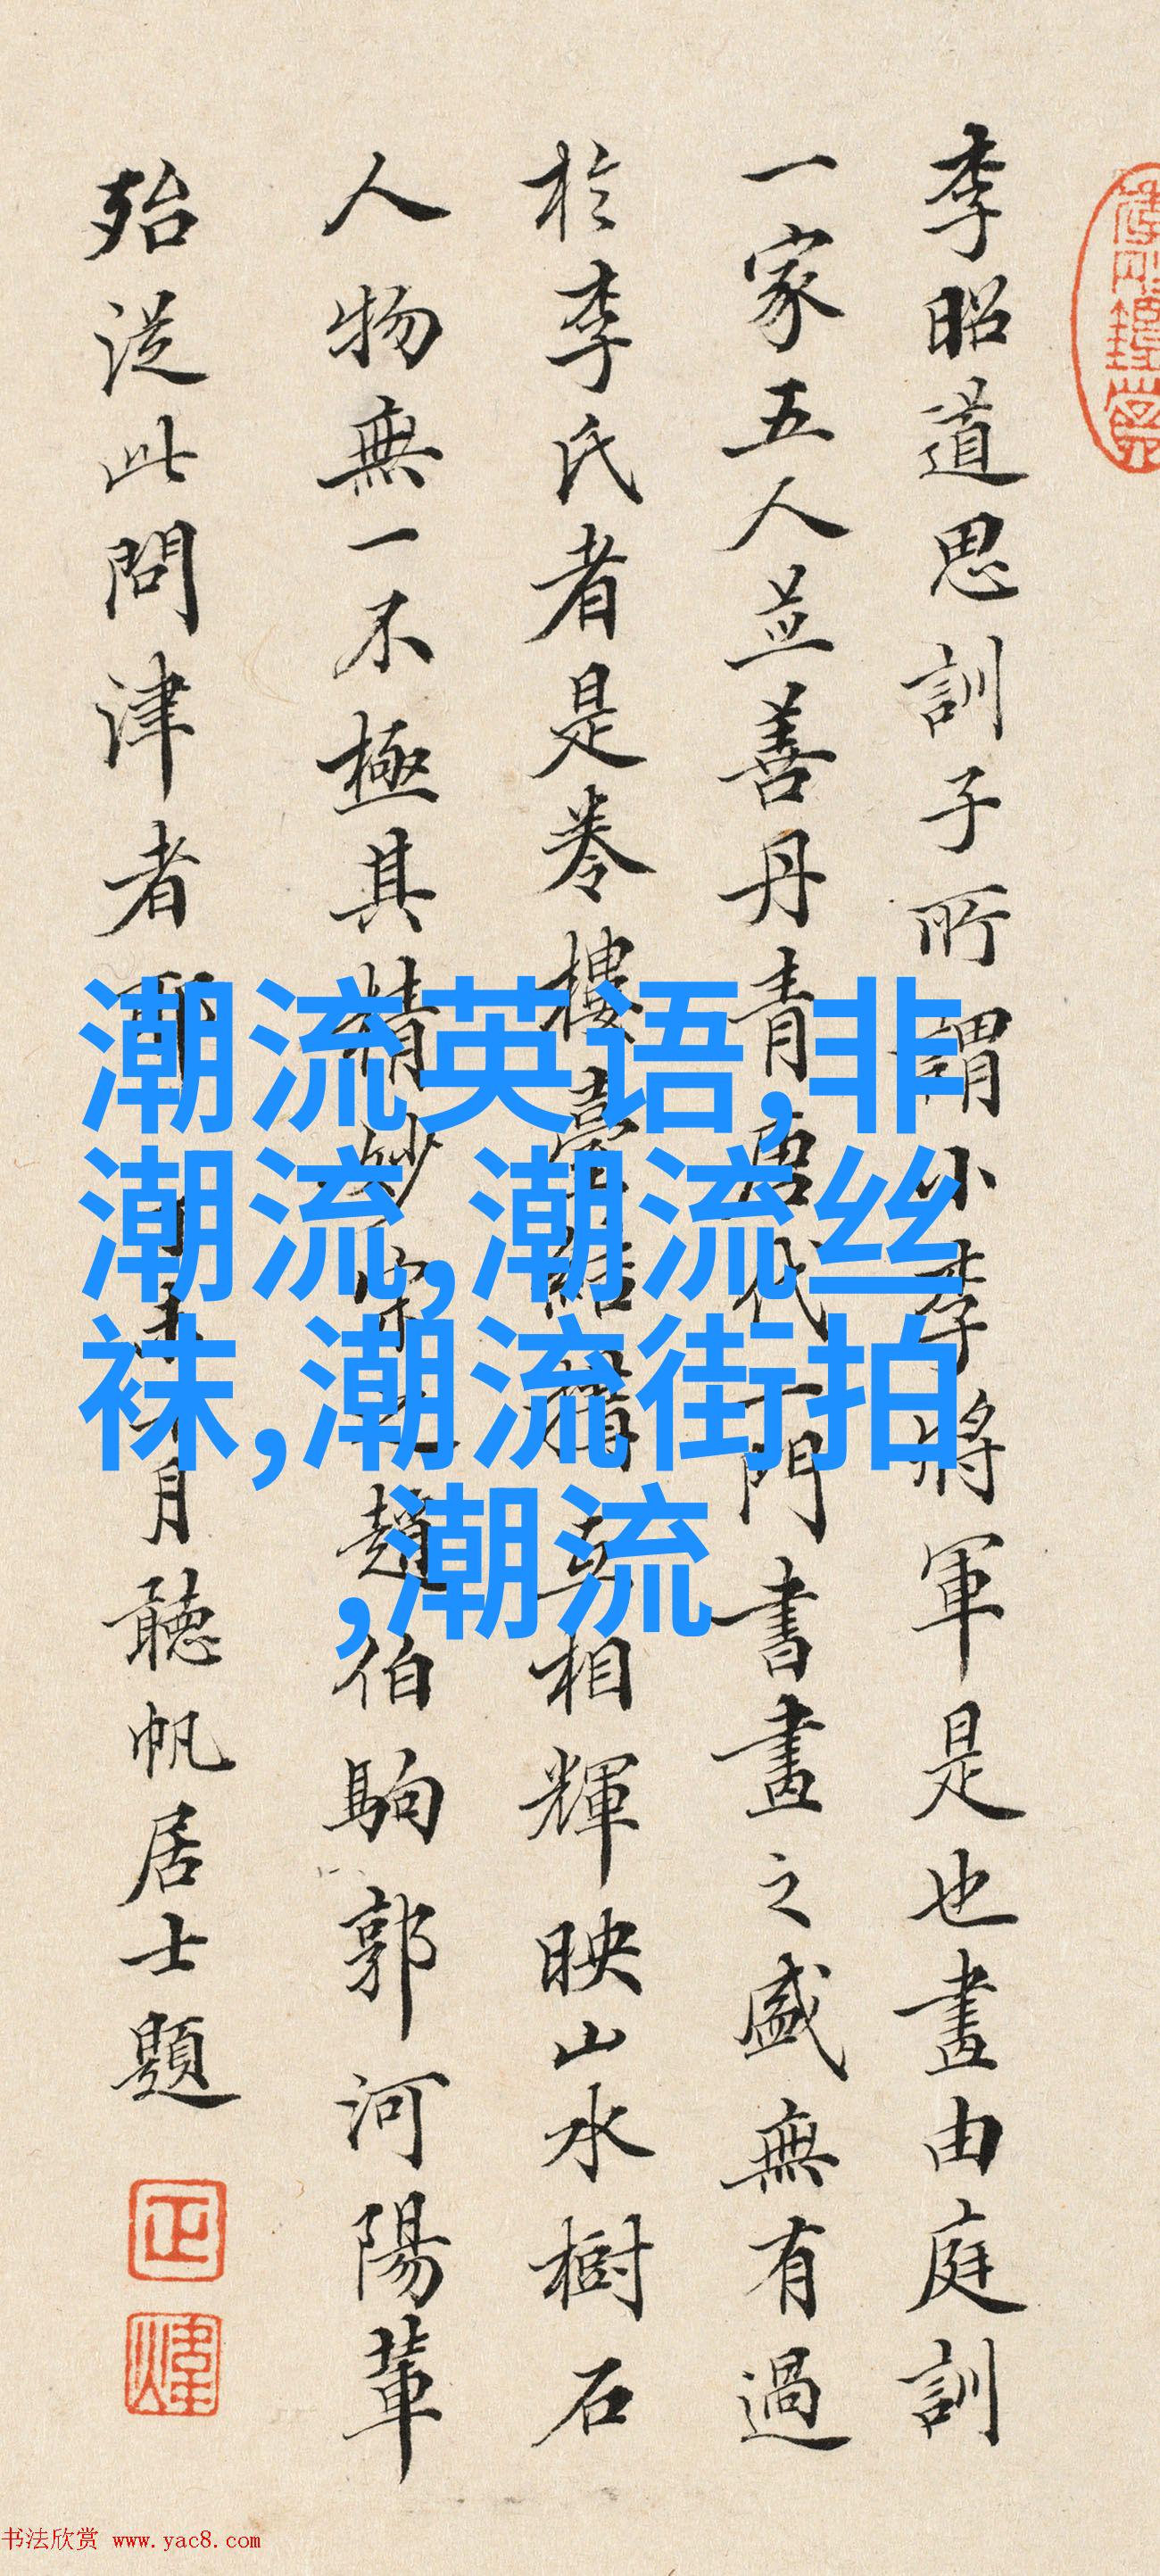 李昭道思訓子所謂小李將軍是也畫由庭訓
一家五人並善丹青唐代一門書畫之盛無有過
於李氏者是卷樓臺結構互相輝映山水樹石
人物無一不極其精妙宋之趙伯駒郭河陽輩
殆從此問津者耶月聽帆居士題
正
煒
潮流英语,非
潮流,潮流丝
袜,潮流街拍
,潮流
书法欣赏 www.yac8.com